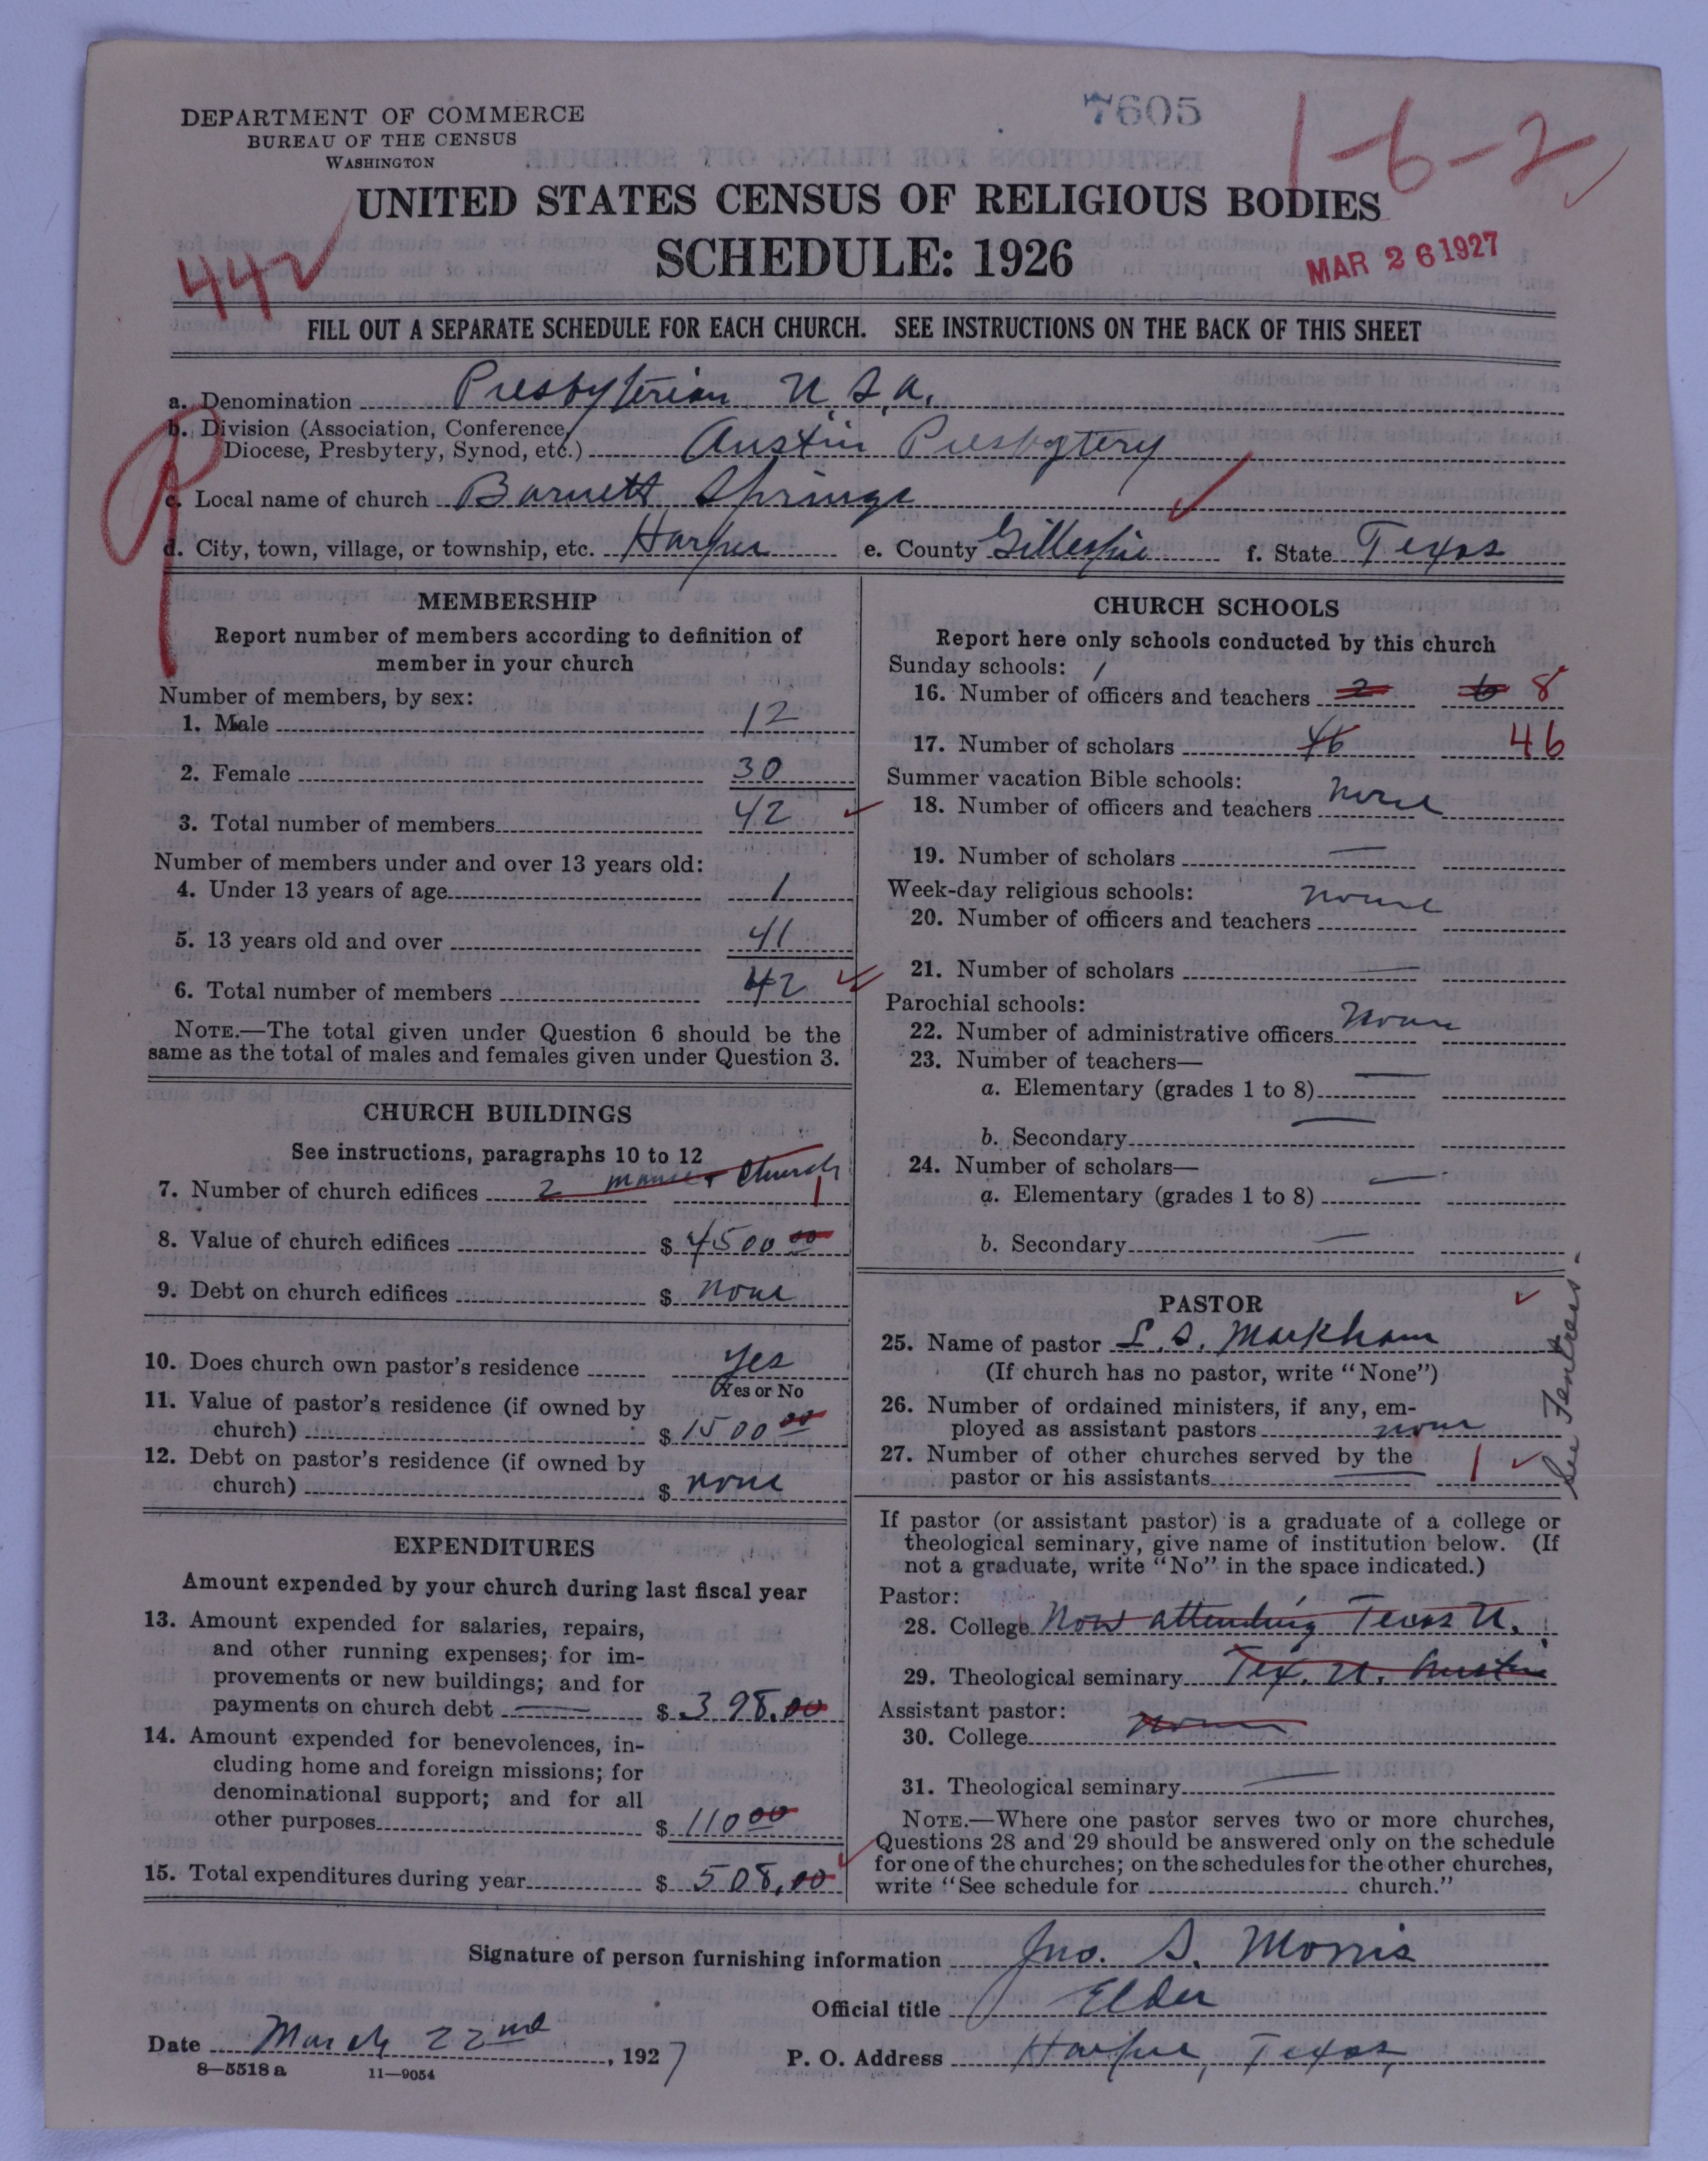 DEPARTMENT OF COMMERCE
BUREAU OF THE CENSUS
WASHINGTON
7605
1-6-2
UNITED STATES CENSUS OF RELIGIOUS BODIES
SCHEDULE: 1926
442
MAR 26 1927
FILL OUT A SEPARATE SCHEDULE FOR EACH CHURCH. SEE INSTRUCTIONS ON THE BACK OF THIS SHEET
a. Denomination Presbyterian U.S.A.
b. Division (Association, Conference,
Diocese, Presbytery, Synod, etc.) Austin Presbytery
c. Local name of church Barnett Springs
d. City, town, village, or township, etc. Harper e. County Gillespie f. State Texas
MEMBERSHIP
Report number of members according to definition of
member in your church
Number of members, by sex:
1. Male 12
2. Female 30
3. Total number of members 42
Number of members under and over 13 years old:
4. Under 13 years of age 1
5. 13 years old and over 41
6. Total number of members 42
NOTE.—The total given under Question 6 should be the
same as the total of males and females given under Question 3.
CHURCH BUILDINGS
See instructions, paragraphs 10 to 12
7. Number of church edifices 2 manse + Church 1
8. Value of church edifices $ 4500 00
9. Debt on church edifices $ none
10. Does church own pastor's residence Yes
Yes or No
11. Value of pastor's residence (if owned by
church) $ 1500 00
12. Debt on pastor's residence (if owned by
church) $ none
EXPENDITURES
Amount expended by your church during last fiscal year
13. Amount expended for salaries, repairs,
and other running expenses; for im-
provements or new buildings; and for
payments on church debt $ 398.00
14. Amount expended for benevolences, in-
cluding home and foreign missions; for
denominational support; and for all
other purposes $ 110 00
15. Total expenditures during year $ 508.00
CHURCH SCHOOLS
Report here only schools conducted by this church
Sunday schools:
16. Number of officers and teachers 2 6 8
17. Number of scholars 46 46
Summer vacation Bible schools:
18. Number of officers and teachers none
19. Number of scholars —
Week-day religious schools:
20. Number of officers and teachers none
21. Number of scholars —
Parochial schools:
22. Number of administrative officers none
23. Number of teachers—
a. Elementary (grades 1 to 8) —
b. Secondary —
24. Number of scholars—
a. Elementary (grades 1 to 8) —
b. Secondary —
PASTOR
25. Name of pastor L. S. Markham
(If church has no pastor, write "None")
26. Number of ordained ministers, if any, em-
ployed as assistant pastors none
27. Number of other churches served by the
pastor or his assistants — 1
If pastor (or assistant pastor) is a graduate of a college or
theological seminary, give name of institution below. (If
not a graduate, write "No" in the space indicated.)
Pastor:
28. College Now attending Texas U.
29. Theological seminary Tex. U. Austin
Assistant pastor:
30. College none
31. Theological seminary —
NOTE.—Where one pastor serves two or more churches,
Questions 28 and 29 should be answered only on the schedule
for one of the churches; on the schedules for the other churches,
write "See schedule for church."
Signature of person furnishing information Jno. S. Morris
Official title Elder
Date March 22nd, 1927 P. O. Address Harper, Texas
8-5518 a 11-9054